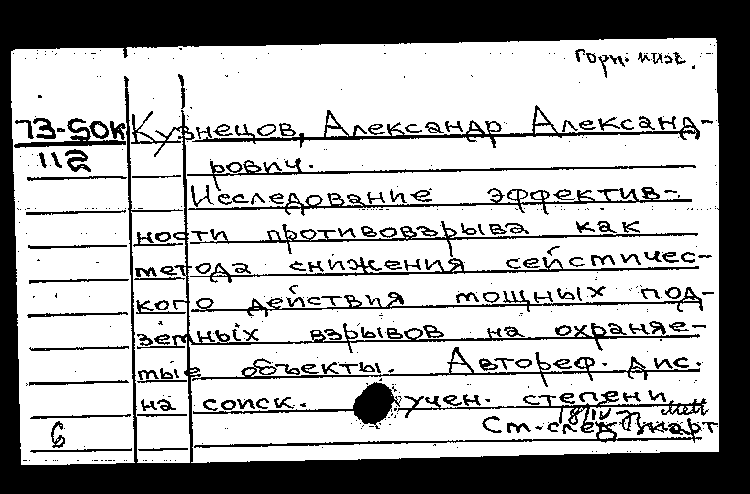 Горн.
73-50к Кузнецов, Александр Александ-
112 рович.
Исследование эффектив-
ности противовзрыва как
метода снижения сейсмичес-
кого действия мощных под-
земных взрывов на охраняе-
мые объекты. Автореф. дис.
на соиск. учен. степени
6 См. след. карт